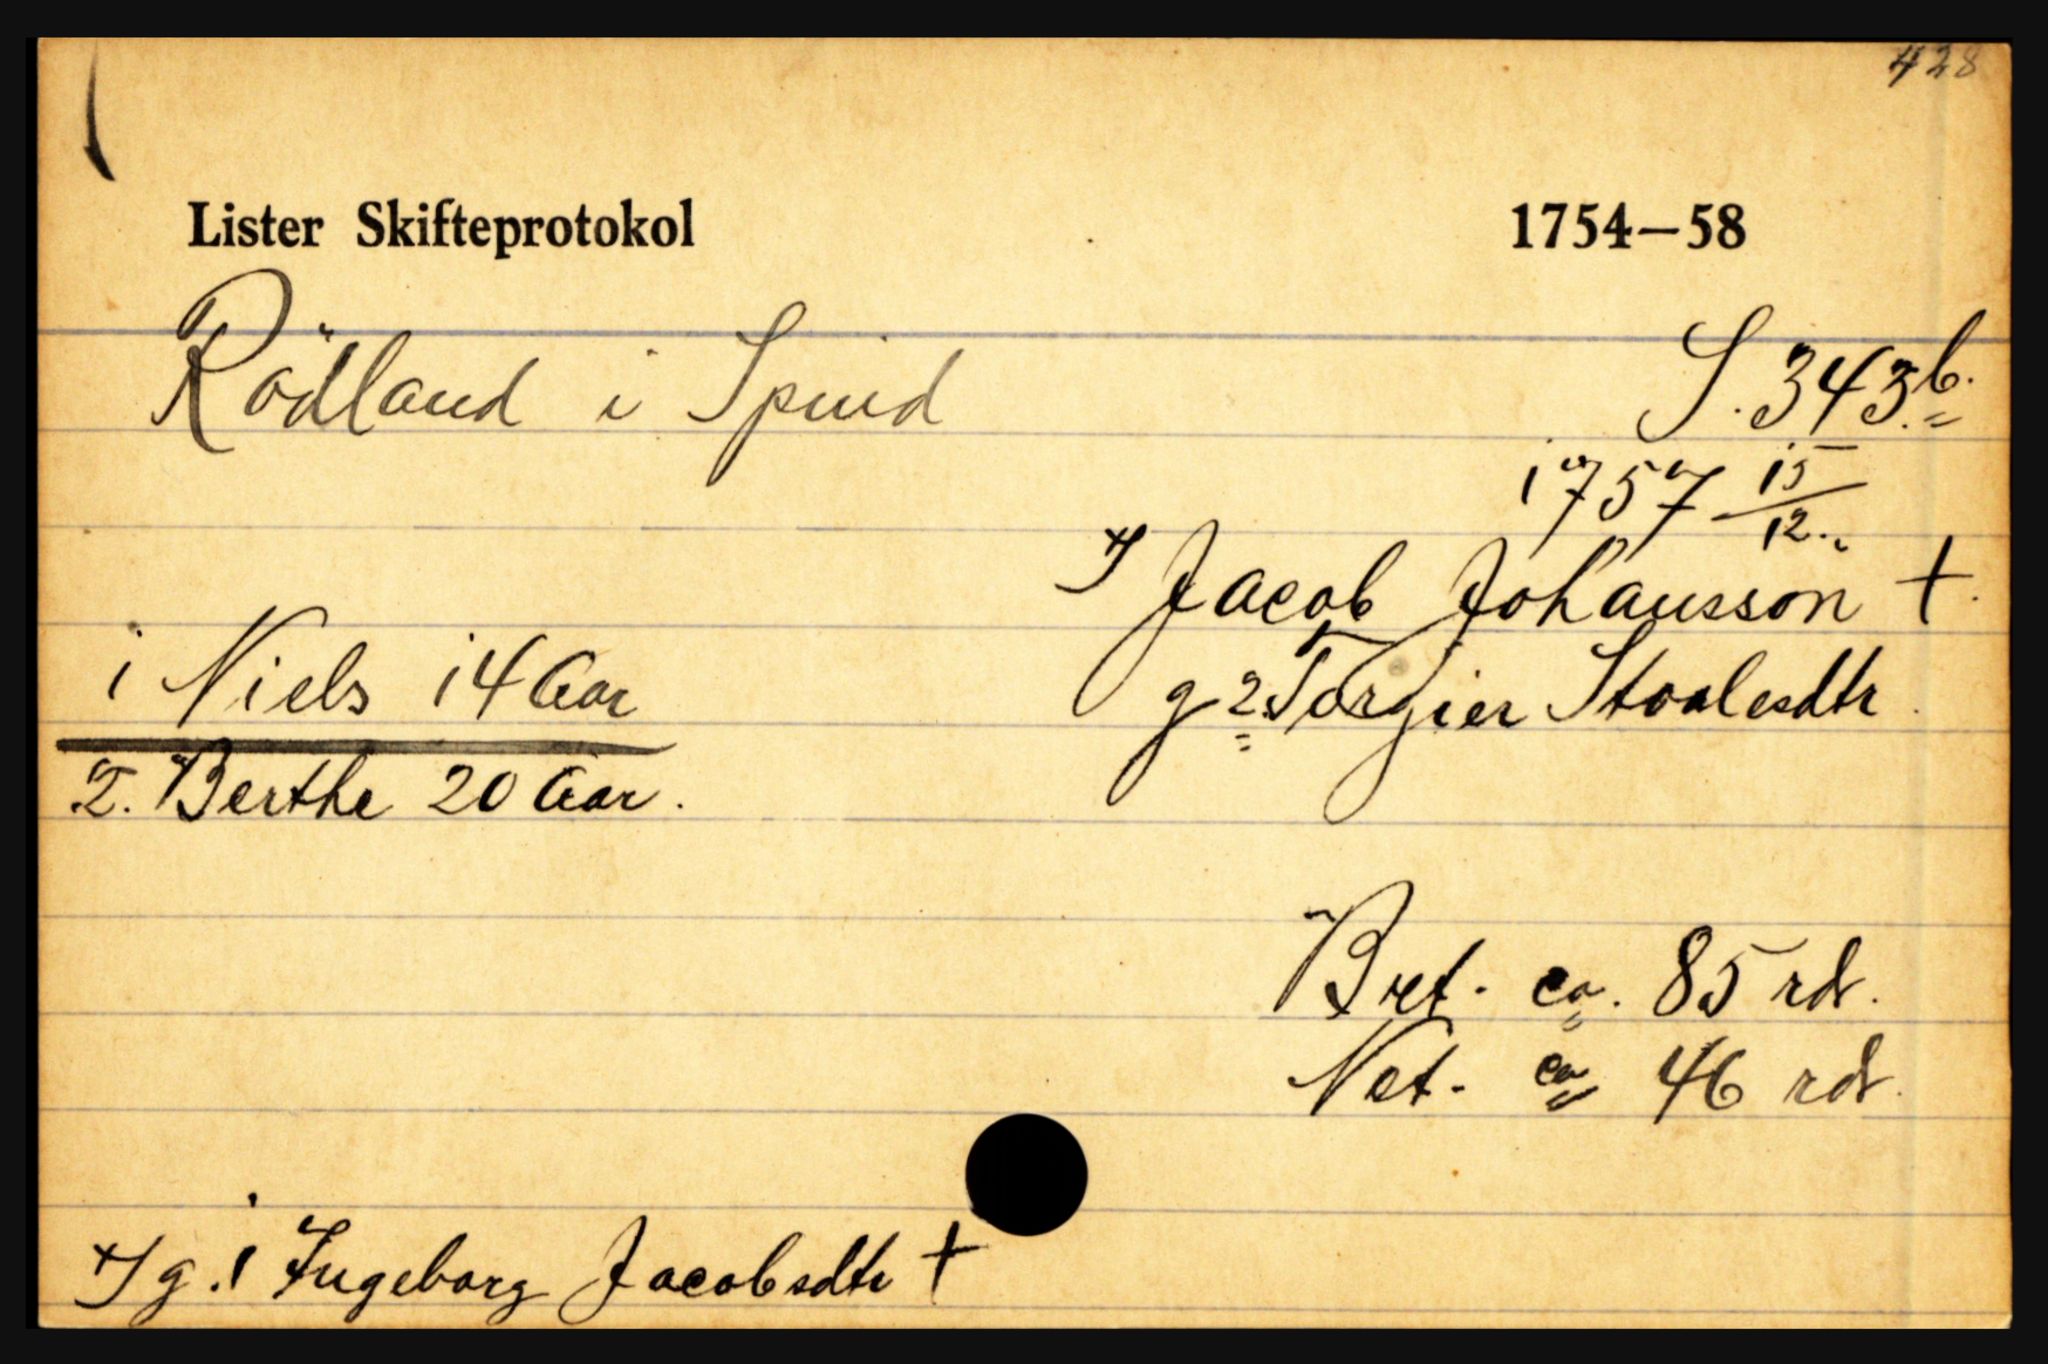 428
Lister Skifteprotokol 1754—58
Rödland i Spind
S. 343b.
1757 15/12
*) Jacob Johansson †.
g 2. Torgier Stoalesdtr.
1 Niels 14 Aar
2. Berthe 20 Aar.
Bret. ca. 85 rdr.
Net. ca 46 rdr.
*) g. 1 Ingeborg Jacobsdtr †